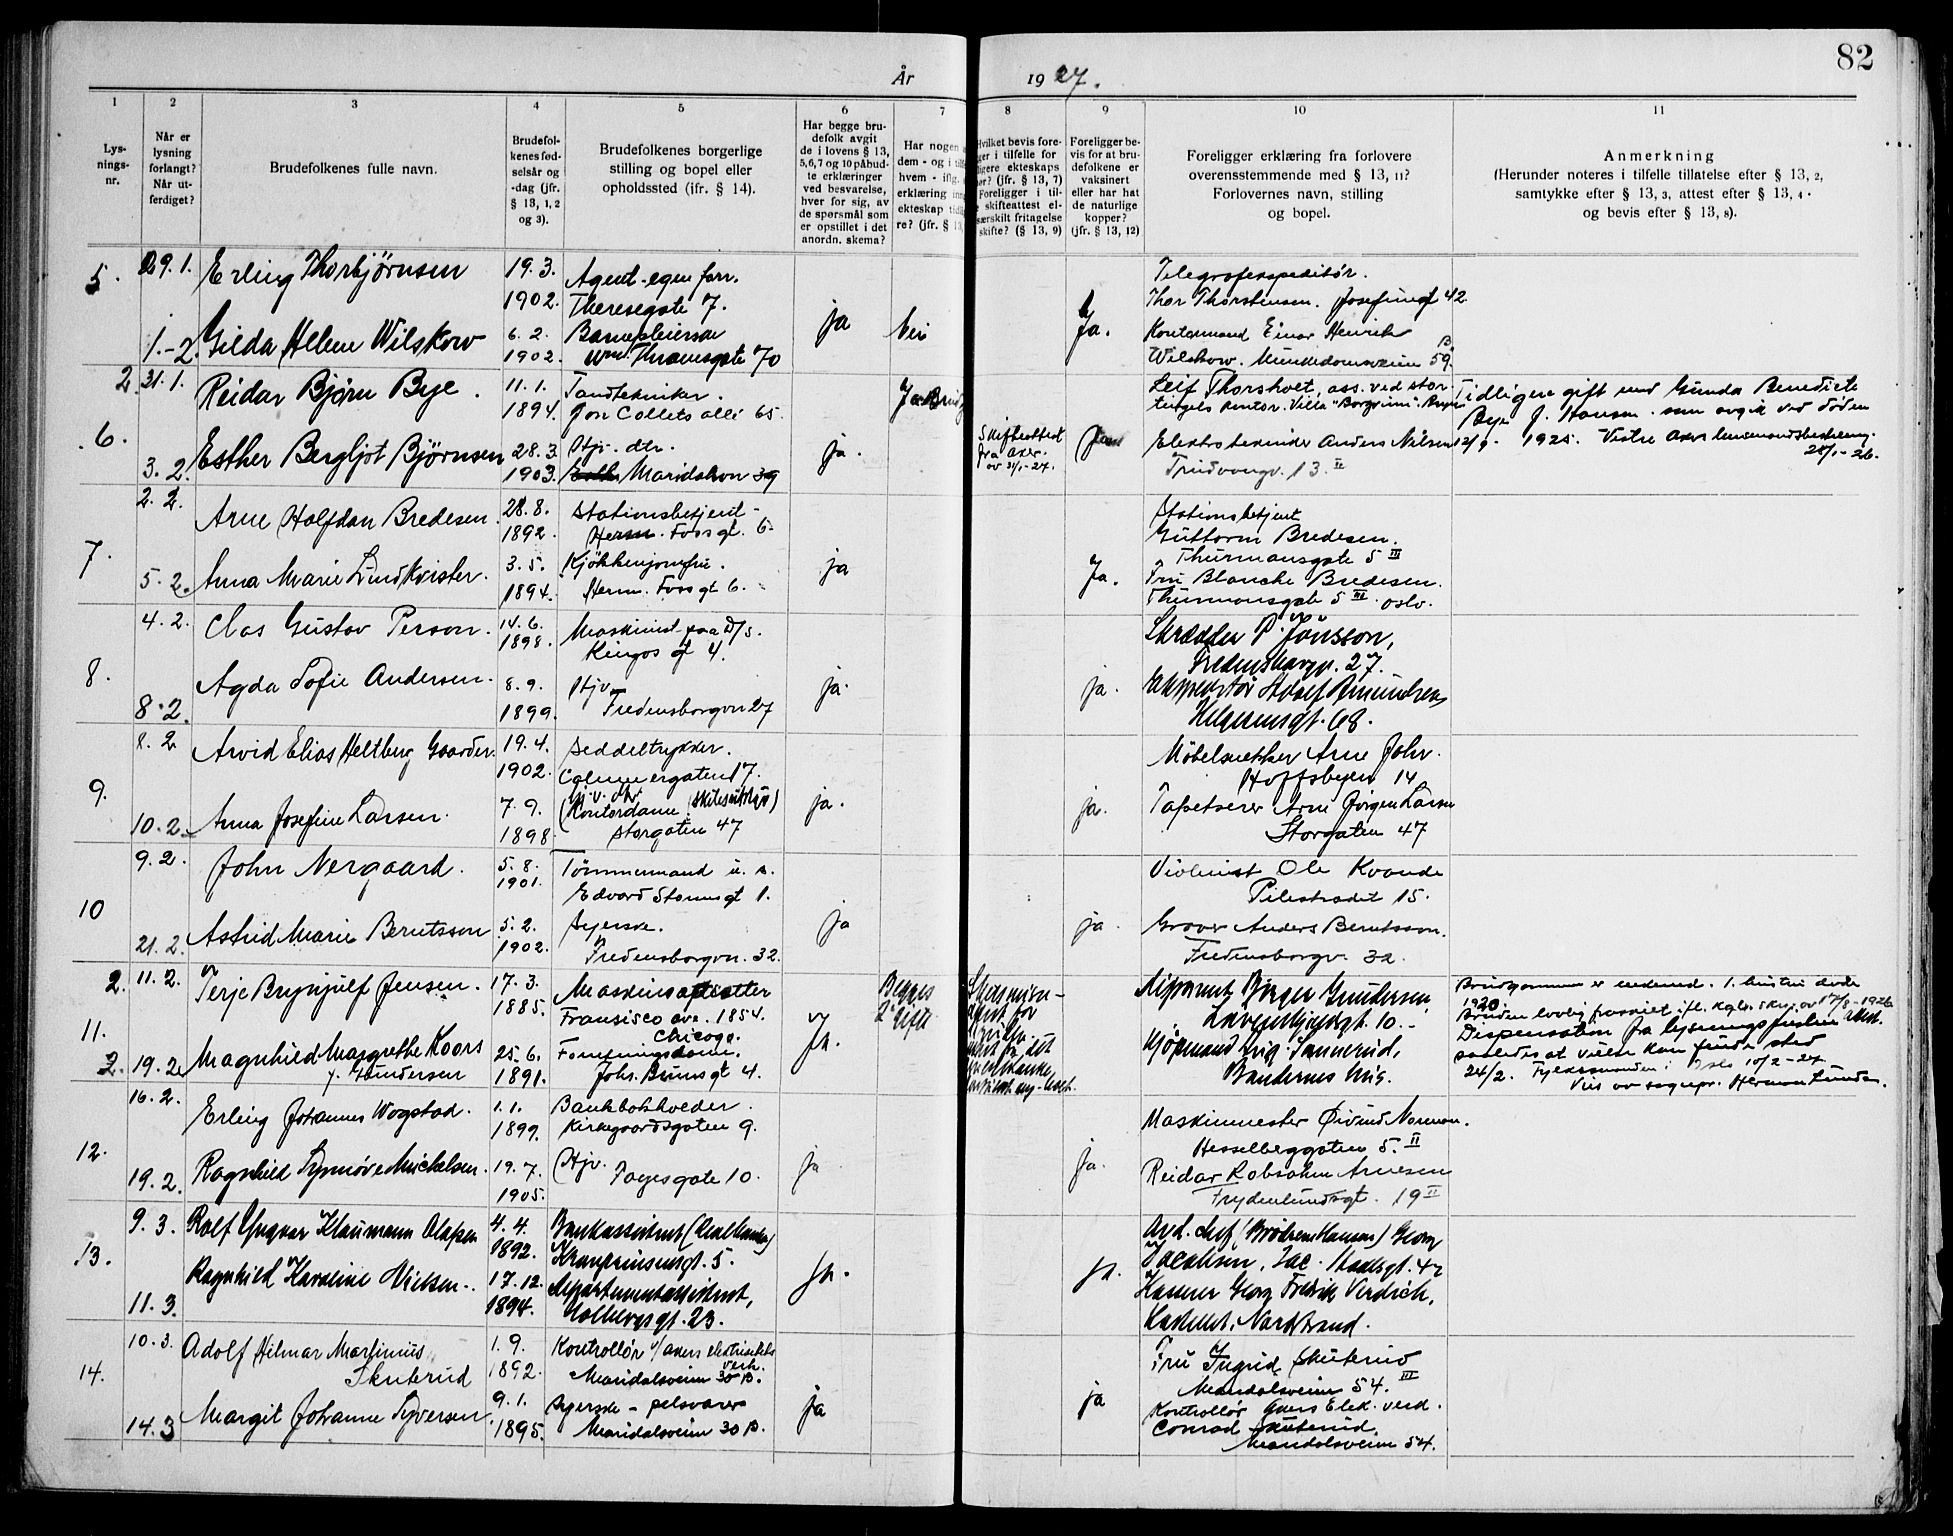 82
År 1927.
1 2 3 4 5 6 7 8 9 10 11
Lysningsnr.
Når er lysning forlangt? Når utferdiget?
Brudefolkenes fulle navn.
Brudefolkenes fødselsår og -dag (jfr. § 13, 1, 2 og 3).
Brudefolkenes borgerlige stilling og bopel eller opholdssted (ifr. § 14).
Har begge brudefolk avgit de i lovens § 13, 5, 6, 7 og 10 påbudte erklæringer ved besvarelse, hver for sig, av de spørsmål som er opstillet i det anordn. skema?
Har nogen
dem - og i
hvem - iflg.
erklæring
ekteskap
re? (jfr. § 13,
Hvilket bevis fore-
ger i tilfelle for
ligere ekteskaps
(jfr. § 13, 7)
Foreligger i til-
skifteattest el-
særskilt fritagelse
skifte? (§ 13, 9)
Foreligger bevis for at brudefolkene er vaksinert eller har hat de naturlige kopper? (jfr. § 13, 12)
Foreligger erklæring fra forlovere
overensstemmende med § 13, 11?
Forlovernes navn, stilling
og bopel.
Anmerkning
(Herunder noteres i tilfelle tillatelse efter § 13, 2,
samtykke efter § 13, 3, attest efter § 13, 4 ·
og bevis efter § 13, 8).
5. 29. 1. Erling Thorbjørnsen 19. 3. 1902. Agent - egen forr. Theresegate 7.
Telegrafekspeditør.
Thor Thorstensen. Josefinegt 42.
1. - 2. Gilda Helene Wilskow 6. 2. 1902. Barnepleierske Wm Thranesgate 70 ja Nei Ja.
Kontormand Einar Henrik
Wilskow. Munkedamsveien 59 B.
2 31. 1. Reidar Bjørn Bye. 11. 1. 1894. Tandtekniker. Jon Collets alle 65. Ja
Leif Thorshvet, ass. ved stortingets kontor. Villa
Tidligere gift med Gunda Benedicte
Bye f. Hansen. som avgik ved døden
12/9. 1925. Vestre Aker lensmandsbestilling.
28/1-26.
6. 3. 2. Esther Bergljot Bjørnsen 28. 3. 1903. Hjv. dtr. Maridalsvn 39 ja.
Skifteattest
fra Aker.
av 31/1-27.
Elektrotekniker Anders Nilsen
Trudvangv. 13. II
7. 2. 2. Arne Halfdan Bredesen. 28. 8. 1892. Stationsbetjent - Herm. Foss gt. 6.
Stationsbetjent
Guttorm Bredesen.
Thurmansgate 5 III
5. 2. Anna Marie Lindkvister. 3. 5. 1894. Kjøkkenjomfru. Herm. Foss gt 6. ja Ja.
Fru Blanche Bredesen.
Thurmansgate 5 III. Oslo.
8. 4. 2. Clas Gustav Person. 14. 6. 1898. Maskinist paa D/s. Kingos gt 4.
Skrædder P. Jönsson,
Fredensborgv. 27.
8. 2. Agda Sofie Andersen. 8. 9. 1899. Hjv. Fredensborgvn 27 ja. ja.
Ekspeditør
Helgesensgt. 68.
9. 8. 2 Arvid Elias Heltberg Gaarder. 19. 4. 1902. Seddeltrykker. 17.
Møbelsnekker Arne Johr.
Hoffsbyen 14
10. 2. Anna Josefine Larsen. 7. 9. 1898 Kontordame Storgaten 47 ja. ja.
Tapetserer Arne Jørgen Larsen
Storgaten 47
10 9. 2. John Nergaard. 5. 8. 1901. Tømmermand u. s. Edvard Stormsgt 1.
Violinist Ole Kvande
Pilestrædet 15.
21. 2. Astrid Marie Berntsson 5. 2. 1902. Syerske. Fredensborgvn. 32. ja ja.
Graver Anders Berntsson.
Fredensborgv. 32.
2. 11. 2. Terje Brynjulf Jensen. 17. 3. 1885. Fransisco ave. 1854. Chicago.
Begges
Birger Gundersen
10.
Brudgommen er enkemand. 1. hustru døde
1920.
Bruden lovlig fraskilt ifl. kgbr. skr. av 17/8-1926
Dispensation fra lysningsfristen
saaledes at vielse kan finde sted
24/2. Fylkesmannen i Oslo 10/2-27.
Vies av sogepr. Herman Lunde.
11. 2. 19. 2. Magnhild Margrethe Koors f. Gundersen 25. 6. 1891. Forretningsdame. Johs. Brunsgt 4. Ja.
Kjøpmand
12. 16. 2. Erling Johannes Wogstad. 1. 1. 1899. Bankbokholder. Kirkegaardsgaten 9.
Maskinmester Øivind Norman.
Hesselberggaten 5. II
19. 2. Ragnhild Synnøve Michelsen. 19. 7. 1905. Hjv. Fagesgate 10. ja ja.
Reidar Robsahm Arnesen
Frydenlundsgt. 19 II
13. 9. 3. Rolf Yngvar Klaumann Olafsen 4. 4. 1892. Bankassistent Kronprinsensgt. 5.
Avd. chef (Brødrene Hansen) Georg
Jacobsen,
11. 3. Ragnhild Karoline Nielsen. 17. 12. 1894. Departementassistent, Holbergsgt. 23. ja. ja.
Kasserer Georg Fredrik
Nordstrand.
14. 10. 3. Adolf Hilmar Martinius Skuterud 1. 9. 1892. Kontrollør v/ Akers elektrisitetsverk. Maridalsveien 30 B.
Fru Ingrid Skuterud
Maridalsveien 54. III
14. 3 Margit Johanne Syversen. 9. 1. 1895. Syerske - pelsvarer Maridalsveien 30 B. ja ja
Kontrollør Akers Elek. verk.
Conrad Skuterud.
Maridalsveien 54.